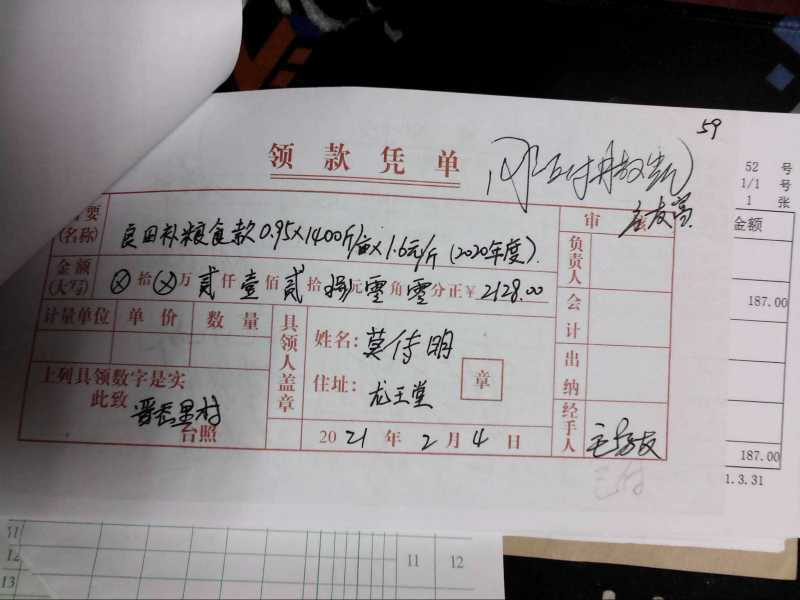 59
领款凭单
52 号
1/1 号
1 张
要
(名称)
良田补粮食款0.95×1400斤/亩×1.6元/斤(2020年度).
审
金额
金额
(大写)
ⓧ拾ⓧ万贰仟壹佰贰拾捌元零角零分正¥2128.00
负责人
187.00
计量单位 单价 数量
具领人盖章
姓名:莫传明
会计
住址:龙王堂
章
出纳
上列具领数字是实
此致
台照
2021年2月4日
经手人
187.00
1.3.31
11 12
12
13